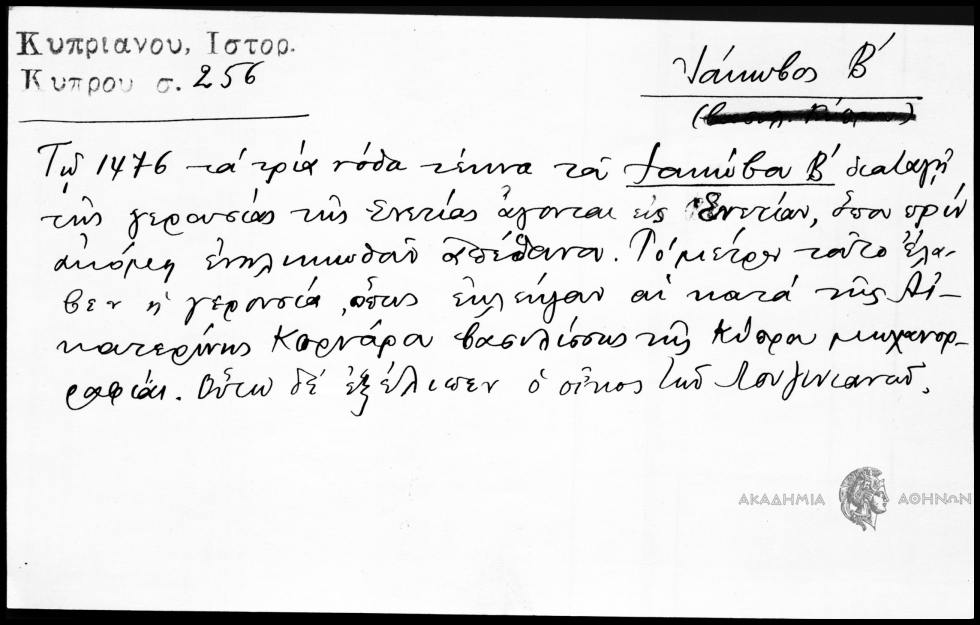 Κυπριανου, Ιστορ.
Κυπρου σ. 256
Ἰάκωβος Β΄
Τῷ 1476 τά τρία νόθα τέκνα τοῦ Ἰακώβου Β΄ διαταγῇ
τῆς γερουσίας τῆς Ἐνετίας ἄγονται εἰς Ἐνετίαν, ὅπου πρίν
ἀκόμη ἐνηλικιωθοῦν ἀπέθανον. Τό μέτρον τοῦτο ἔλα-
βεν ἡ γερουσία, ὅπως ἐκλείψουν αἱ κατά τῆς Αἰ-
κατερίνης Κορνάρο βασιλίσσης τῆς Κύπρου μηχανορ-
ραφίαι. Οὕτω δέ ἐξέλιπεν ὁ οἶκος τῶν Λουζινιανῶν.
ΑΚΑΔΗΜΙΑ ΑΘΗΝΩΝ